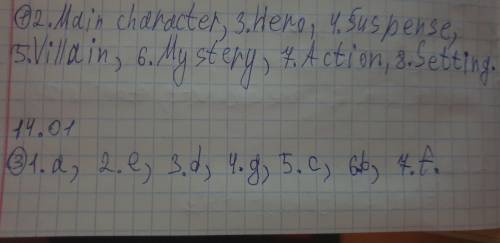 ①2.Main character, 3.Hero, 4.Suspense,
5.Villain, 6.Mystery, 7.Action, 8.Setting.
14.01
③1.a, 2.e, 3.d, 4.g, 5.c, 6.b, 7.f.